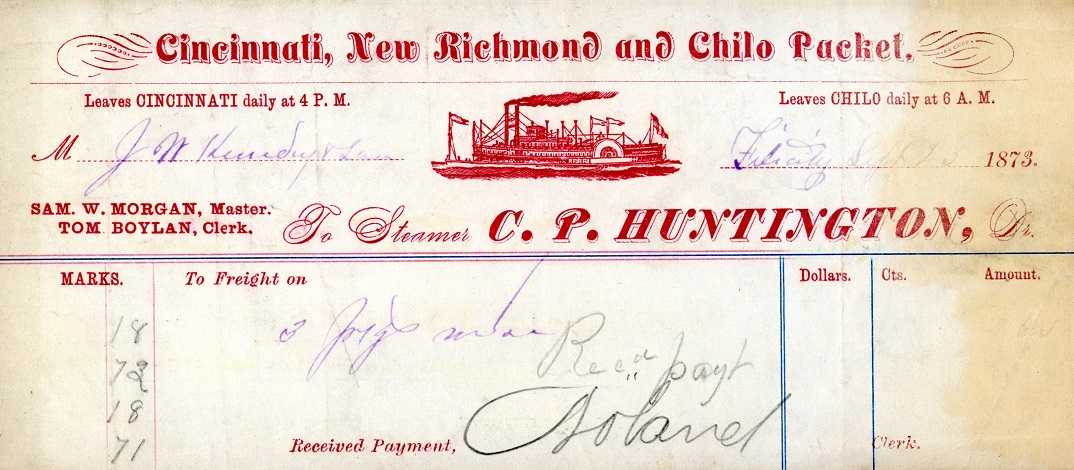 Cincinnati, New Richmond and Chilo Packet.
Leaves CINCINNATI daily at 4 P. M.
Leaves CHILO daily at 6 A. M.
M J W
1873.
SAM. W. MORGAN, Master.
TOM BOYLAN, Clerk.
To Steamer C. P. HUNTINGTON, Dr.
MARKS. To Freight on Dollars. Cts. Amount.
18
3
72
Rec'd payt
18
71
Received Payment, Clerk.